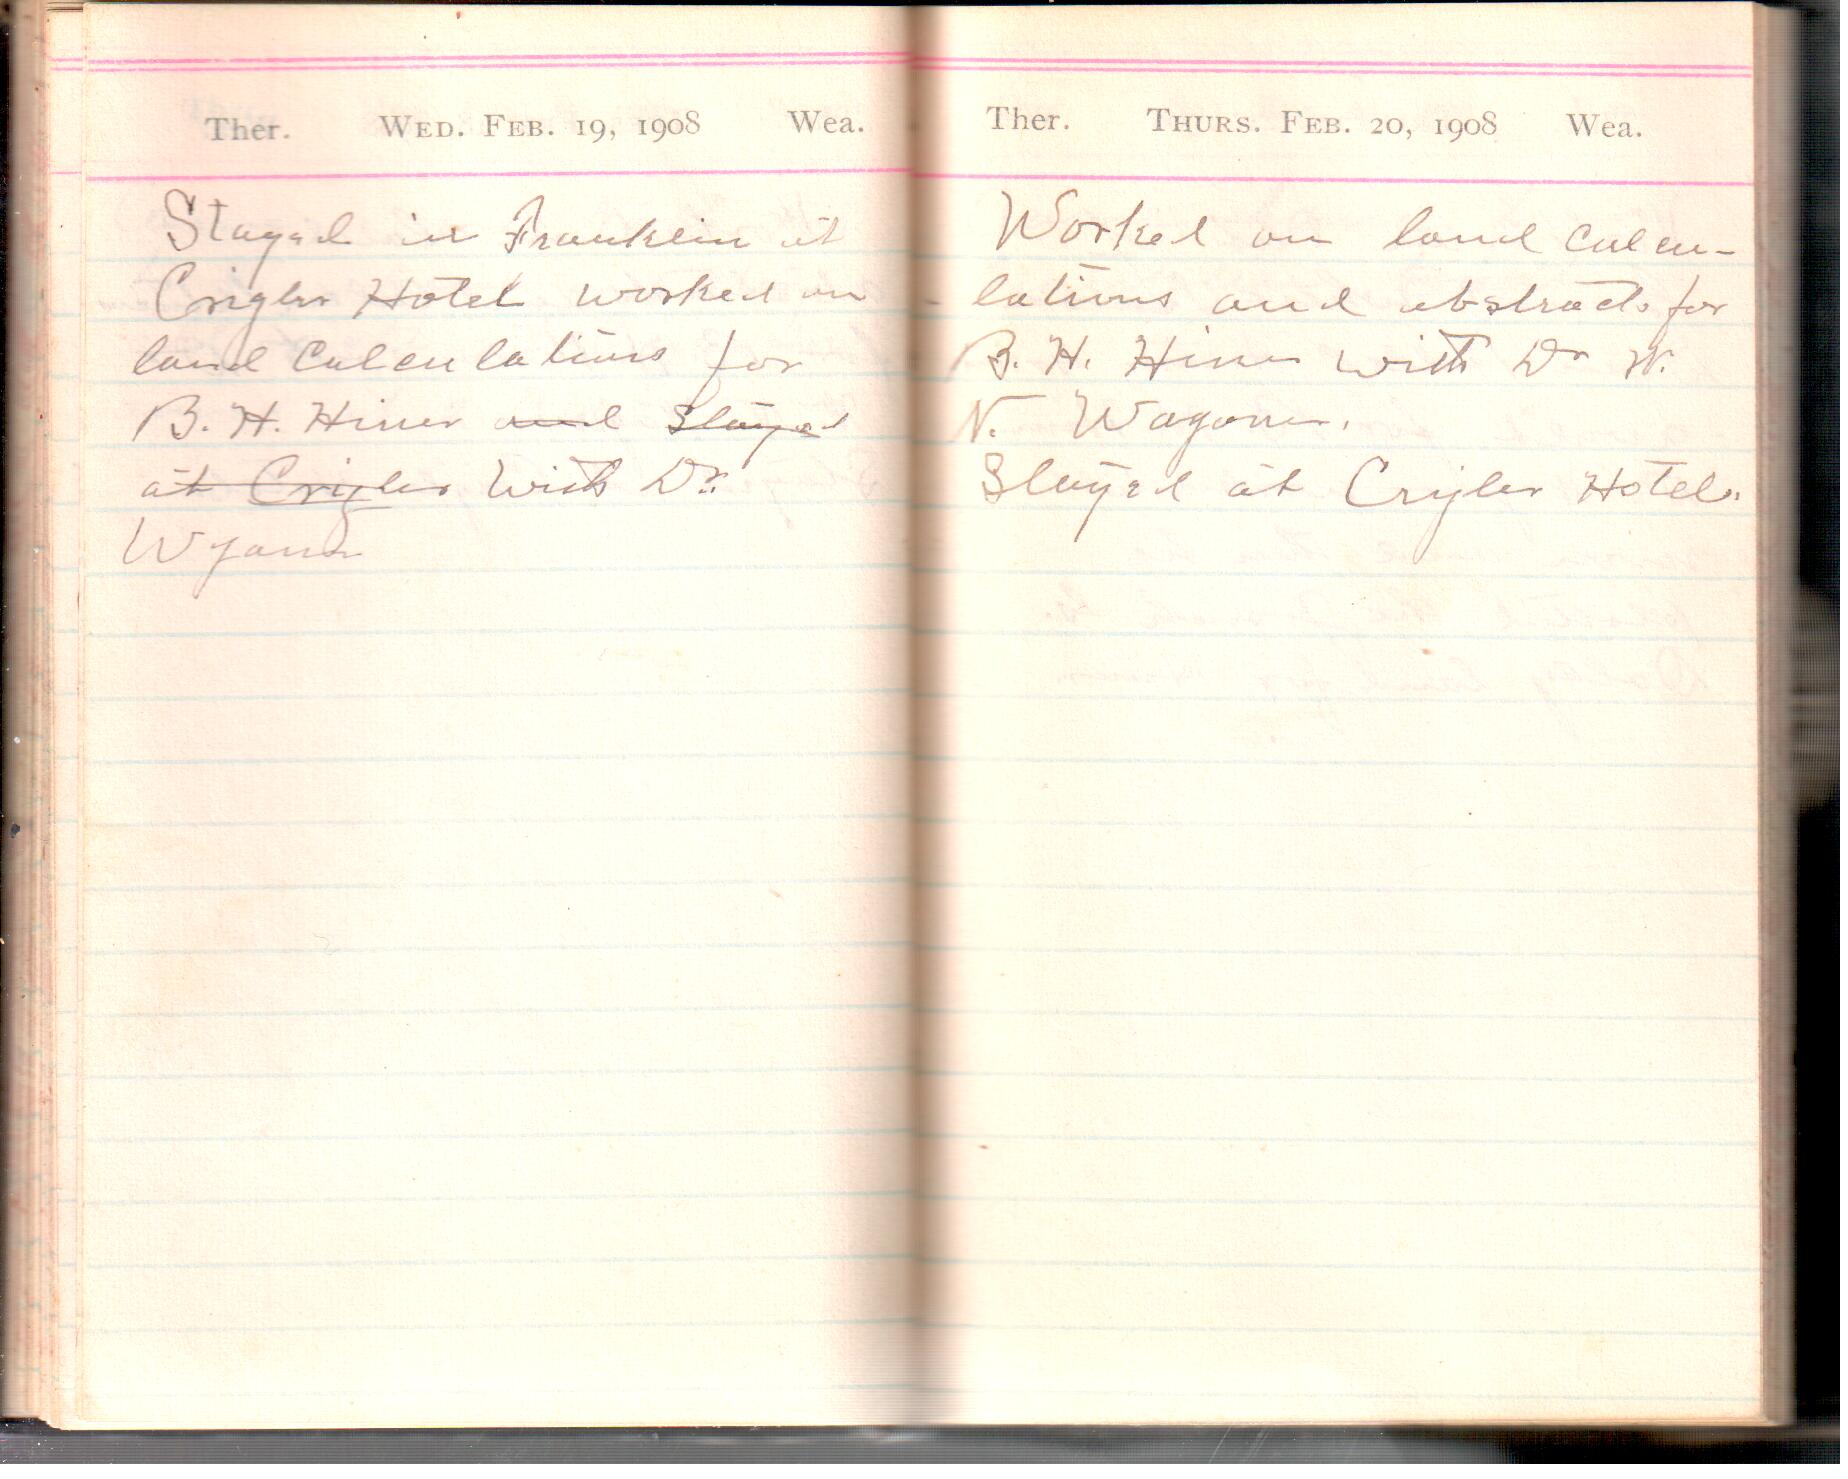 Ther. WED. FEB. 19, 1908 Wea.
Stayed in Franklin at
Crigler Hotel worked on
land calculations for
B. H. Hiner and Stayed
at Crigler with Dr.
Ther. THURS. FEB. 20, 1908 Wea.
Worked on land calcu-
-lations and abstracts for
B. H. Hiner with Dr W.
N. Wagoner.
Stayed at Crigler Hotel.